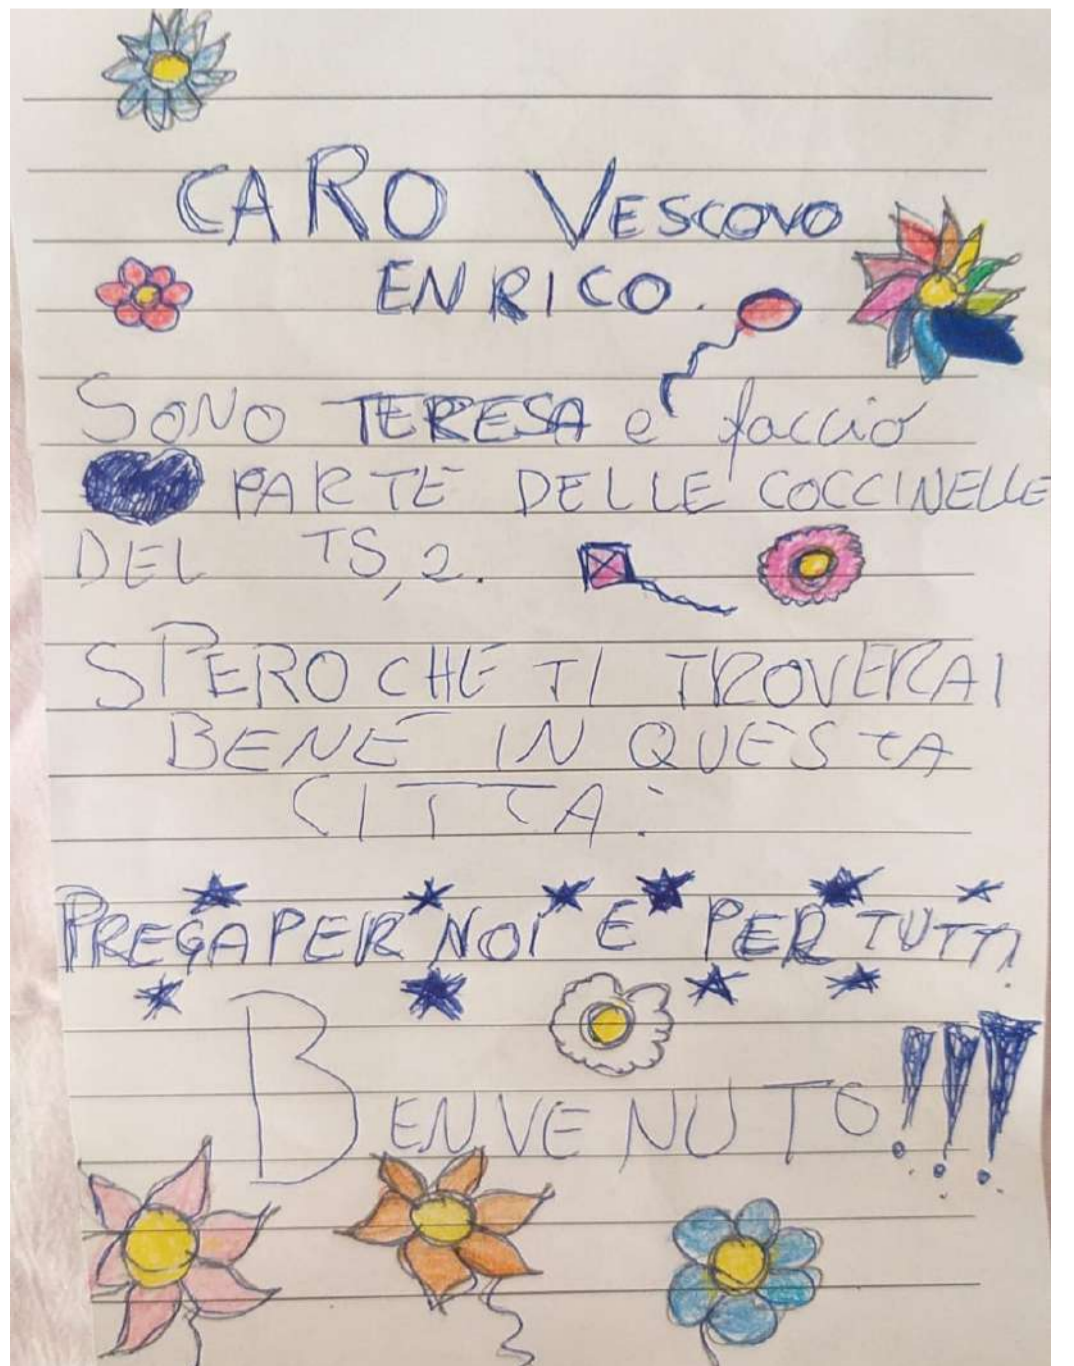 CARO VESCOVO
ENRICO.
SONO TERESA e faccio
PARTE DELLE COCCINELLE
DEL TS,2.
SPERO CHE TI TROVERAI
BENE IN QUESTA
CITTA:
PREGA PER NOI E PER TUTTI
BENVENUTO!!!